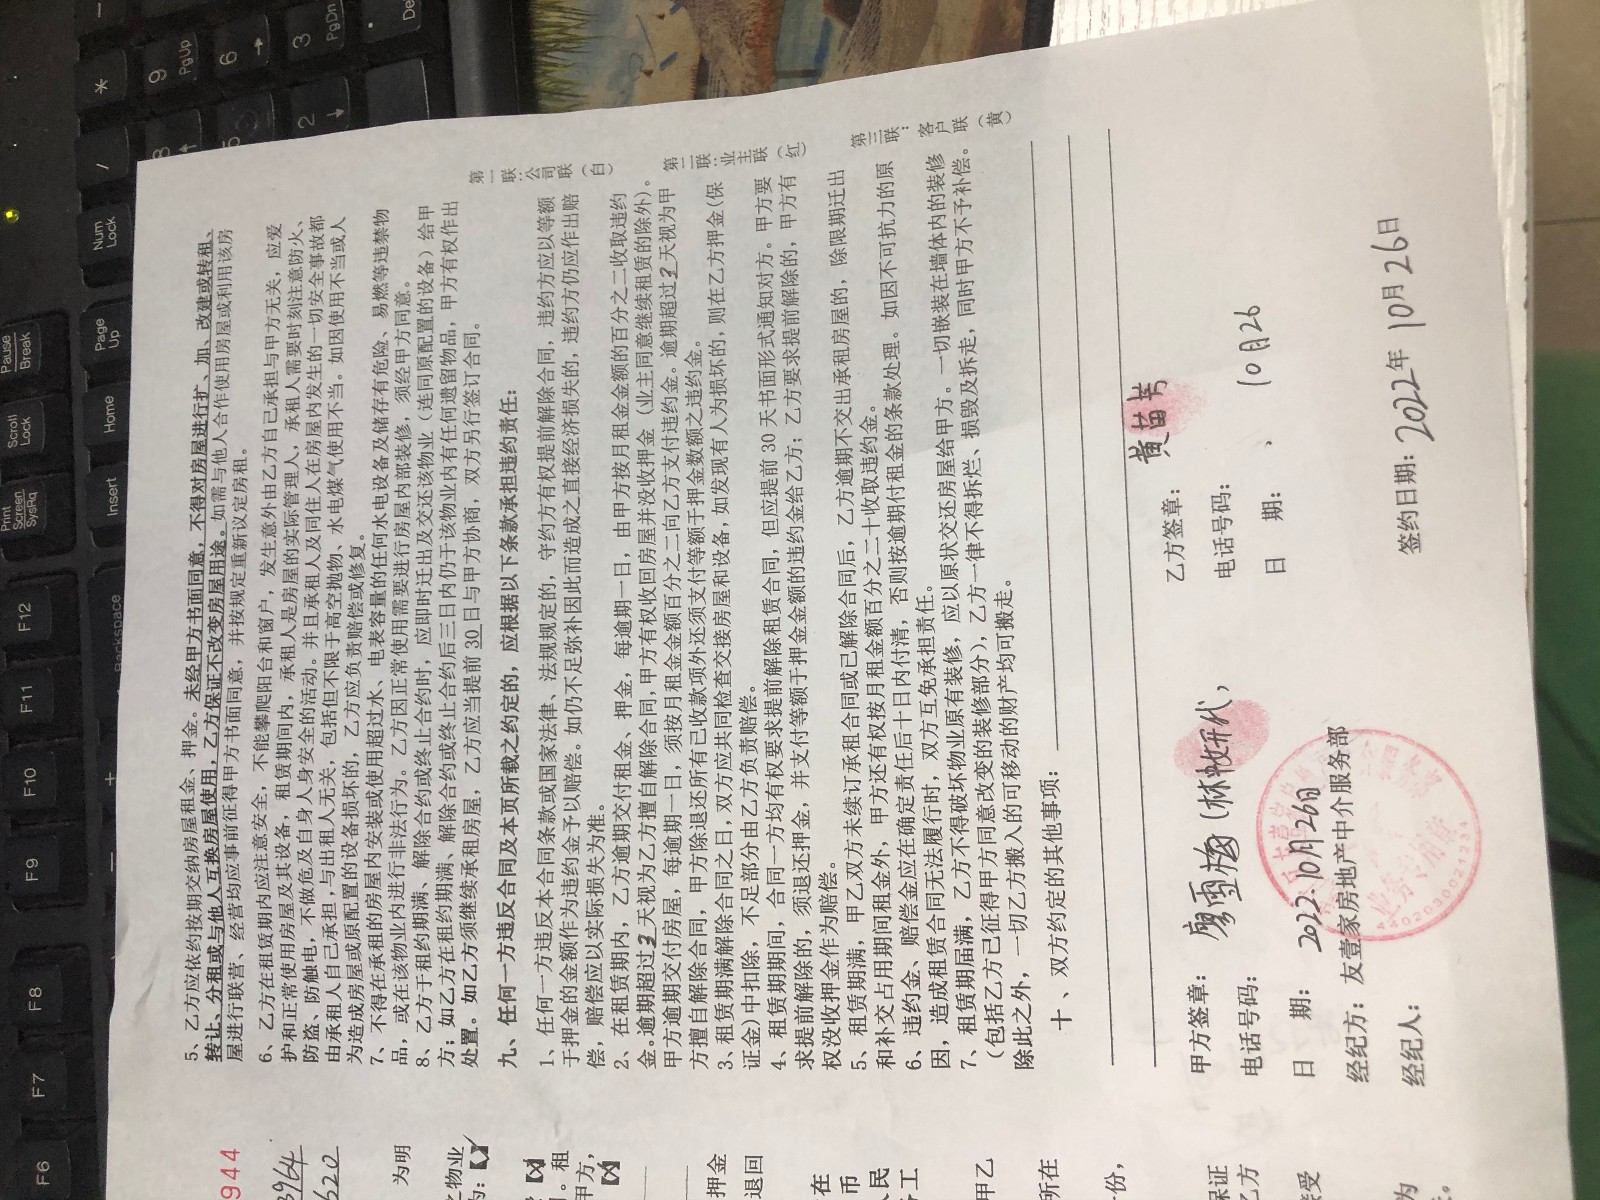 5、乙方应依约按期交纳房屋租金、押金。未经甲方书面同意，不得对房屋进行扩、加、改建或转租、
转让、分租或与他人互换房屋使用，乙方保证不改变房屋用途。如需与他人合作使用房屋或利用该房
屋进行联营、经营均应事前征得甲方书面同意，并按规定重新议定房租。
6、乙方在租赁期内应注意安全，不能攀爬阳台和窗户，发生意外由乙方自己承担与甲方无关，应爱
护和正常使用房屋及其设备，租赁期间内，承租人是房屋的实际管理人，承租人需要时刻注意防火、
防盗、防触电，不做危及自身人身安全的活动。并且承租人及同住人在房屋内发生的一切安全事故都
由承租人自己承担，与出租人无关，包括但不限于高空抛物、水电煤气使用不当。如因使用不当或人
为造成房屋或原配置的设备损坏的，乙方应负责赔偿或修复。
7、不得在承租的房屋内安装或使用超过水、电表容量的任何水电设备及储存有危险、易燃等违禁物
品，或在该物业内进行非法行为。乙方因正常使用需要进行房屋内部装修，须经甲方同意。
8、乙方于租约期满、解除合约或终止合约时，应即时迁出及交还该物业（连同原配置的设备）给甲
方；如乙方在租约期满、解除合约或终止合约后三日内仍于该物业内有任何遗留物品，甲方有权作出
处置。如乙方须继续承租房屋，乙方应当提前 30 日与甲方协商，双方另行签订合同。
九、任何一方违反合同及本页所载之约定的，应根据以下条款承担违约责任：
1、任何一方违反本合同条款或国家法律、法规规定的，守约方有权提前解除合同，违约方应以等额
于押金的金额作为违约金予以赔偿。如仍不足弥补因此而造成之直接经济损失的，违约方仍应作出赔
偿，赔偿应以实际损失为准。
2、在租赁期内，乙方逾期交付租金、押金，每逾期一日，由甲方按月租金金额的百分之二收取违约
金。逾期超过 3 天视为乙方擅自解除合同，甲方有权收回房屋并没收押金（业主同意继续租赁的除外）。
甲方逾期交付房屋，每逾期一日，须按月租金金额百分之二向乙方支付违约金。逾期超过 3 天视为甲
方擅自解除合同，甲方除退还所有已收款项外还须支付等额于押金数额之违约金。
3、租赁期满解除合同之日，双方应共同检查交接房屋和设备，如发现有人为损坏的，则在乙方押金（保
证金）中扣除，不足部分由乙方负责赔偿。
4、租赁期期间，合同一方均有权要求提前解除租赁合同，但应提前 30 天书面形式通知对方。甲方要
求提前解除的，须退还押金，并支付等额于押金金额的违约金给乙方；乙方要求提前解除的，甲方有
权没收押金作为赔偿。
5、租赁期满，甲乙双方未续订承租合同或已解除合同后，乙方逾期不交出承租房屋的，除限期迁出
和补交占用期间租金外，甲方还有权按月租金额百分之二十收取违约金。
6、违约金、赔偿金应在确定责任后十日内付清，否则按逾期付租金的条款处理。如因不可抗力的原
因，造成租赁合同无法履行时，双方互免承担责任。
7、租赁期届满，乙方不得破坏物业原有装修，应以原状交还房屋给甲方。一切嵌装在墙体内的装修
（包括乙方已征得甲方同意改变的装修部分），乙方一律不得拆烂、损毁及拆走，同时甲方不予补偿。
除此之外，一切乙方搬入的可移动的财产均可搬走。
十、双方约定的其他事项：
甲方签章：廖雪梅（林
电话号码：
日 期：2022.10月26日
经纪方：友壹家房地产中介服务部
经纪人：
乙方签章：黄苗芳
电话号码：
日 期： 10月26
签约日期：2022年10月26日
第一联：公司联（白）
第二联：业主联（红）
第三联：客户联（黄）
业务专用章
4420300021234
944
620
为明
物业
为：
租
甲方，
押金
退回
在
币
人民
工
甲乙
所在
份，
保证
乙方
接受
为